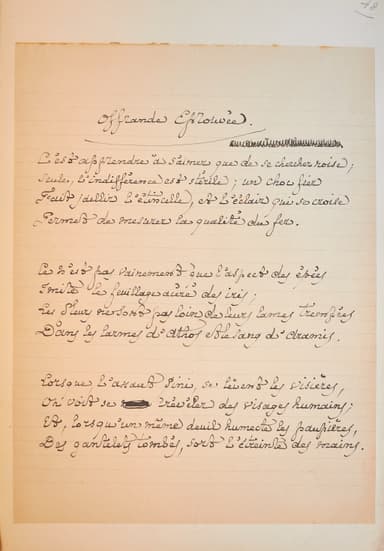 Offrande Eprouvée.
C'est apprendre à s'aimer que de se chercher noise ;
Seule, l'indifférence est stérile ; un choc fier
Fait jaillir l'étincelle, et l'éclair qui se croise
Permet de mesurer la qualité du fer.
Ce n'est pas vainement que l'aspect des épées
Imite le feuillage des iris ;
Les fleurs ne sont pas loin de leurs lames trempées
Dans les larmes d'Athos et le sang d'Aramis.
Lorsque l'assaut fini, se lèvent les visières,
On voit se révéler des visages humains ;
Et, lorsqu'un même deuil humecte les paupières,
Des gantelets tombés, sort l'étreinte des mains.